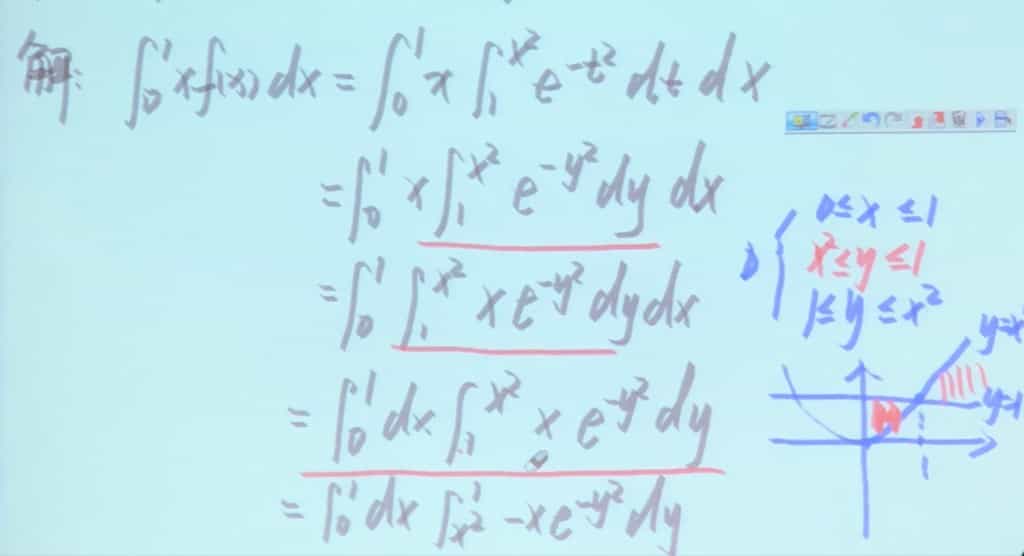 解: ∫₀¹ x f(x) dx = ∫₀¹ x ∫₁^{x²} e^{-t²} dt dx
= ∫₀¹ x ∫₁^{x²} e^{-y²} dy dx
= ∫₀¹ ∫₁^{x²} x e^{-y²} dy dx
= ∫₀¹ dx ∫₁^{x²} x e^{-y²} dy
= ∫₀¹ dx ∫_{x²}^1 -x e^{-y²} dy
D { 0 ≤ x ≤ 1
x² ≤ y ≤ 1
1 ≤ y ≤ x²
y=x²
y=1
1